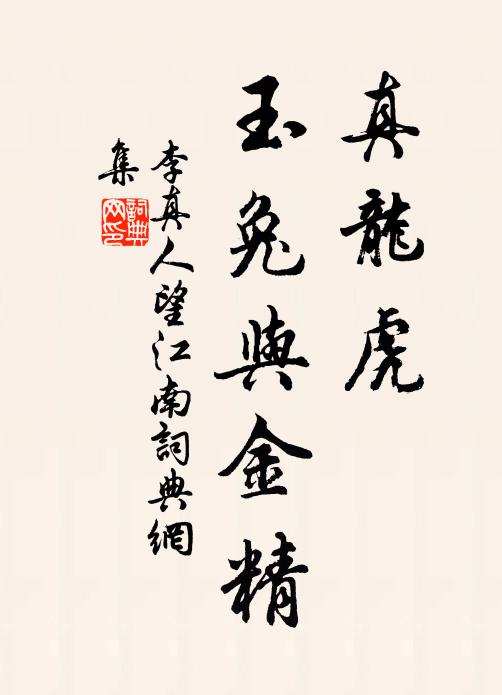 真龍虎
玉兔與金精
李真人望江南詞典網
集
詞典网印